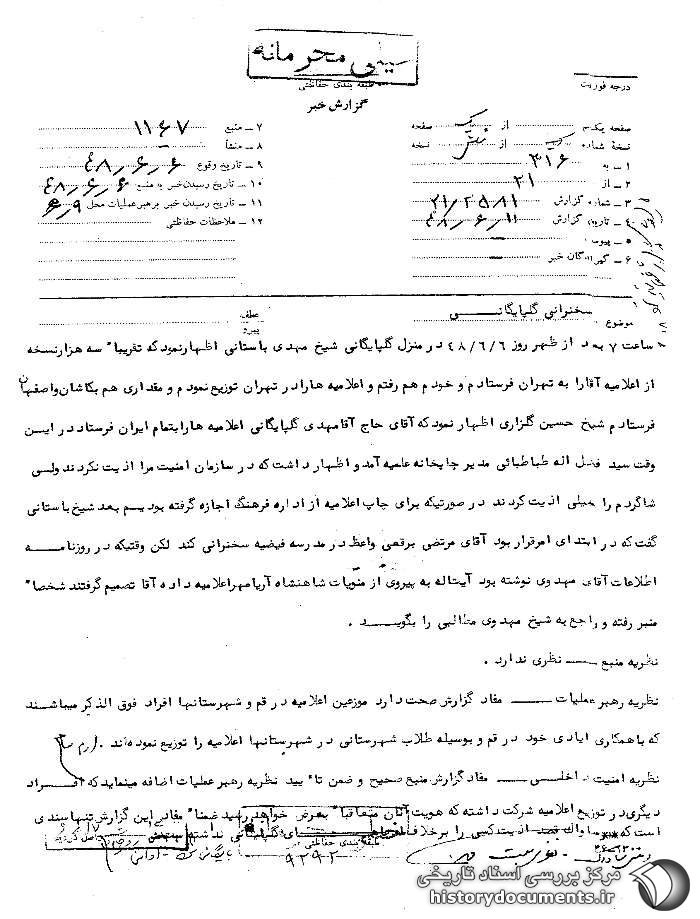 خیلی محرمانه
طبقه بندی حفاظتی
گزارش خبر
درجه فوریت
صفحه یکم از یک صفحه
نسخه شماره یک از شش نسخه
۱ ـ به ۳۱۶
۲ ـ از ۲۱
۳ ـ شماره گزارش ۲۱/۲۵۸۱
۴ ـ تاریخ گزارش ۴۸/۶/۱۱
۵ ـ پیوست
۶ ـ گیرندگان خبر
۷ ـ منبع ۱۱۶۷
۸ ـ منشأ
۹ ـ تاریخ وقوع ۴۸/۶/۶
۱۰ ـ تاریخ رسیدن خبر به منبع ۴۸/۶/۶
۱۱ ـ تاریخ رسیدن خبر برهبر عملیات محل ۶/۹
۱۲ ـ ملاحظات حفاظتی
موضوع سخنرانی گلپایگانی
عطف
پیرو
ساعت ۷ بعد از ظهر روز ۴۸/۶/۶ در منزل گلپایگانی شیخ مهدی باستانی اظهار نمود که تقریبا" سه هزار نسخه
از اعلامیه آقا را به تهران فرستادم و خودم هم رفتم و اعلامیه ها را در تهران توزیع نمودم و مقداری هم بکاشان و اصفهان
فرستادم شیخ حسین گلزاری اظهار نمود که آقای حاج آقا مهدی گلپایگانی اعلامیه ها را بتمام ایران فرستاد در ایـن
وقت سید فضل اله طباطبائی مدیر چاپخانه علمیه آمد و اظهار داشت که در سازمان امنیت مرا اذیت نکردند ولـی
شاگردم را خیلی اذیت کردند در صورتیکه برای چاپ اعلامیه از اداره فرهنگ اجازه گرفته بودیـم بعد شیخ باستانی
گفت که در ابتدای امر قرار بود آقای مرتضی برقعی واعظ در مدرسه فیضیه سخنرانی کند لکن وقتیکه در روزنامـه
اطلاعات آقای مهدوی نوشته بود آیت‌اله به پیروی از منویات شاهنشاه آریامهر اعلامیه داده آقا تصمیم گرفتند شخصا"
منبر رفته و راجع به شیخ مهدوی مطالبی را بگویـد .
نظریه منبع ـــ نظری ندارد .
نظریه رهبر عملیات ـــ مفاد گزارش صحت دارد موزعین اعلامیه در قم و شهرستانها افراد فوق الذکر میباشـند
که با همکاری ایادی خود در قم و بوسیله طلاب شهرستانی در شهرستانها اعلامیه را توزیع نموده‌اند .
نظریه امنیت داخلـی ـــ مفاد گزارش منبع صحیح و ضمن تأ یید نظریه رهبر عملیات اضافه مینماید که افـراد
دیگری در توزیع اعلامیه شرکت داشته که هویت آنان متعاقبا" بعرض خواهد رسید ضمنا" مفاد این گزارش تنها سندی
است که ساواک قصد اذیت کسی را برخلاف گلپایگانی نداشته
طبقه بندی حفاظتی
۹۲۹۲
مرکز بررسی اسناد تاریخی
historydocuments.ir